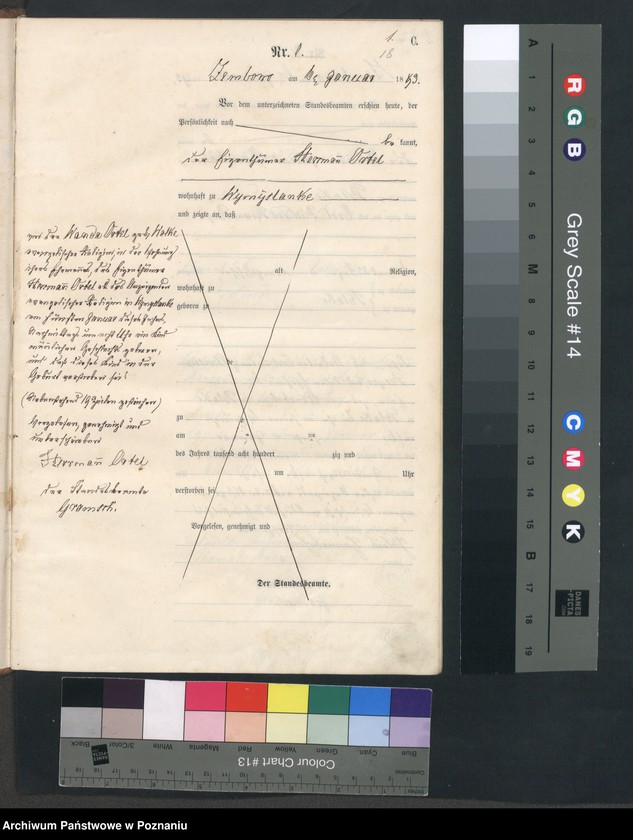 1.
C.
18
Nr. 1.
Zembowo am 16. Januar 1893.
Vor dem unterzeichneten Standesbeamten erschien heute, der
Persönlichkeit nach
be kannt,
der Eigenthümer Herrman Ortel
wohnhaft zu
und zeigte an, daß
von der Wanda Ortel geb.
evangelischer Religion, in der Wohnung
ihres Ehemannes, des Eigenthümers
Herrman Ortel
evangelischer Religion in
am Januar dieses Jahres,
Nachmittags um acht Uhr ein Kind
männlichen Geschlechts geboren,
und daß dieses Kind in der
Geburt verstorben sei.
Vorgelesen, genehmigt und
unterschrieben
Herrman Ortel
der Standesbeamte
Gramsch.
alt Religion,
wohnhaft zu
geboren zu
zu
am
des Jahres tausend acht hundert zig und
um Uhr
verstorben sei
Vorgelesen, genehmigt und
Der Standesbeamte.
A
1
2
3
4
5
6
M
8
9
10
11
12
13
14
15
B
17
18
19
R
G
B
Grey Scale #14
C
M
Y
K
DANES
-PICTA
.COM
Black
3/Color
White
Magenta
Red
Yellow
Green
Cyan
Blue
Colour Chart #13
Centimetres
Inches
Archiwum Państwowe w Poznaniu